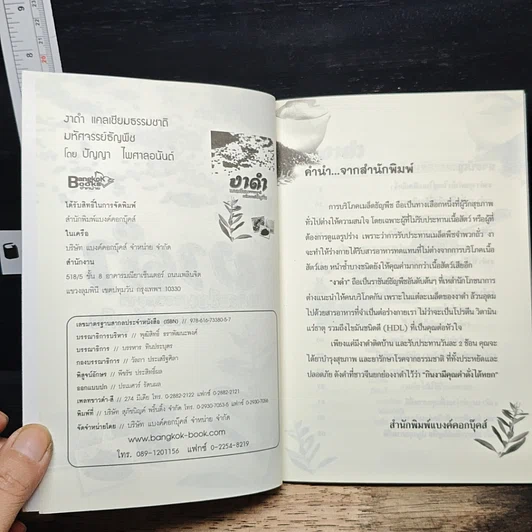 งาดำ แคลเซียมธรรมชาติ
มหัศจรรย์ธัญพืช
โดย ปัญญา ไพศาลอนันต์
Bangkok
Books
งาดำ
ได้รับสิทธิ์ในการจัดพิมพ์
สำนักพิมพ์แบงค์คอกบุ๊คส์
ในเครือ
บริษัท แบงค์คอกบุ๊คส์ จำหน่าย จำกัด
สำนักงาน
518/5 ชั้น 8 อาคารมณียาเซ็นเตอร์ ถนนเพลินจิต
แขวงลุมพินี เขตปทุมวัน กรุงเทพฯ 10330
เลขมาตรฐานสากลประจำหนังสือ (ISBN) : 978-616-73380-5-7
บรรณาธิการบริหาร : พุฒิสิทธิ์
บรรณาธิการ : บรรหาร ทินประนุตร
กองบรรณาธิการ : วัลภา ประเสริฐศิลา
พิสูจน์อักษร : พิชรัช ประสิทธิ์ผล
ออกแบบปก : ปรเมศวร์ รัตนผล
เพลทขาวดำ-สี : 274 มีเดีย โทร. 0-2882-2122 แฟกซ์ 0-2882-2121
พิมพ์ที่ : บริษัท สุภัชนิญค์ พริ้นติ้ง จำกัด โทร. 0-2930-7053-8 แฟกซ์ 0-2930-7096
จัดจำหน่ายโดย : บริษัท แบงค์คอกบุ๊คส์ จำหน่าย จำกัด
www.bangkok-book.com
โทร. 089-1201156 แฟกซ์ 0-2254-8219
คำนำ...จากสำนักพิมพ์
การบริโภคเมล็ดธัญพืช ถือเป็นทางเลือกหนึ่งที่ผู้รักสุขภาพ
ทั่วไปต่างให้ความสนใจ โดยเฉพาะผู้ที่ไม่รับประทานเนื้อสัตว์ หรือผู้ที่
ต้องการดูแลรูปร่าง เพราะว่าการรับประทานเมล็ดพืชจำพวกถั่ว งา
จะทำให้ร่างกายได้รับสารอาหารทดแทนที่ไม่ต่างจากการบริโภคเนื้อ
สัตว์เลย หนำซ้ำบางชนิดยังให้คุณค่ามากกว่าเนื้อสัตว์เสียอีก
"งาดำ" ถือเป็นราชินีธัญพืชอันดับต้นๆ ที่เหล่านักโภชนาการ
ต่างแนะนำให้คนบริโภคกัน เพราะในแต่ละเมล็ดของงาดำ ล้วนอุดม
ไปด้วยสารอาหารที่จำเป็นต่อร่างกายเรา ไม่ว่าจะเป็นโปรตีน วิตามิน
แร่ธาตุ รวมถึงไขมันชนิดดี (HDL) ที่เป็นคุณต่อหัวใจ
เพียงแค่มีงาดำติดบ้าน และรับประทานวันละ 2 ช้อน คุณจะ
ได้ยาบำรุงสุขภาพ และยารักษาโรคจากธรรมชาติ ที่ทั้งประหยัดและ
ปลอดภัย ดังคำที่ชาวจีนยกย่องงาดำไว้ว่า "กินงามีคุณค่าดั่งได้หยก"
สำนักพิมพ์แบงค์คอกบุ๊คส์